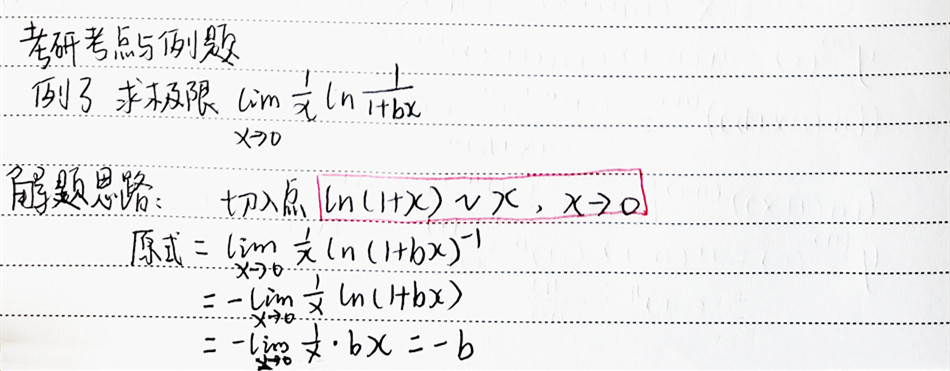 考研考点与例题
例3 求极限 lim 1/x ln 1/(1+bx)
x→0
解题思路: 切入点 ln(1+x) ~ x, x→0
原式 = lim x→0 1/x ln(1+bx)^-1
= -lim x→0 1/x ln(1+bx)
= -lim x→0 1/x · bx = -b